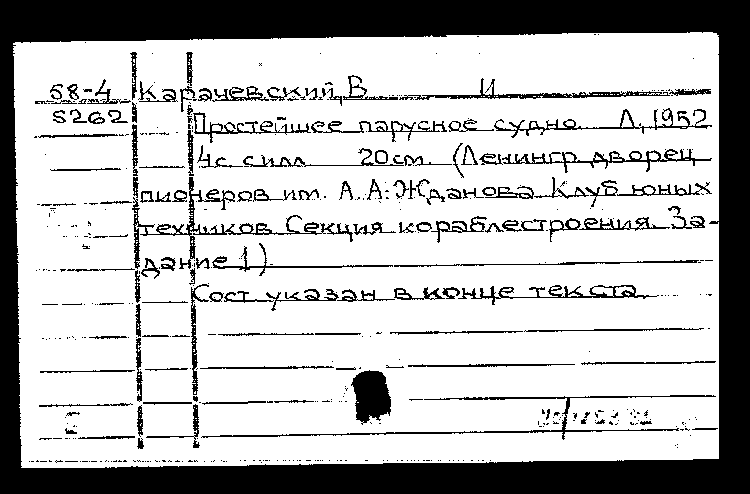 58-4 Карачевский, В И
5262 Простейшее парусное судно. Л, 1952
4с с илл. 20см. (Ленингр дворец
пионеров им. А. А. Жданова Клуб юных
техников. Секция кораблестроения. За-
дание 1)
Сост указан в конце текста.